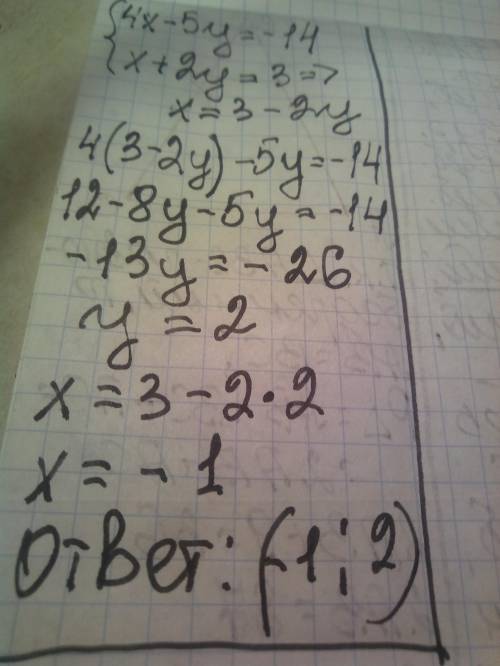 {4x-5y=-14
x+2y=3=>
x=3-2y
4(3-2y)-5y=-14
12-8y-5y=-14
-13y=-26
y=2
x=3-2·2
x=-1
Ответ: (-1;2)